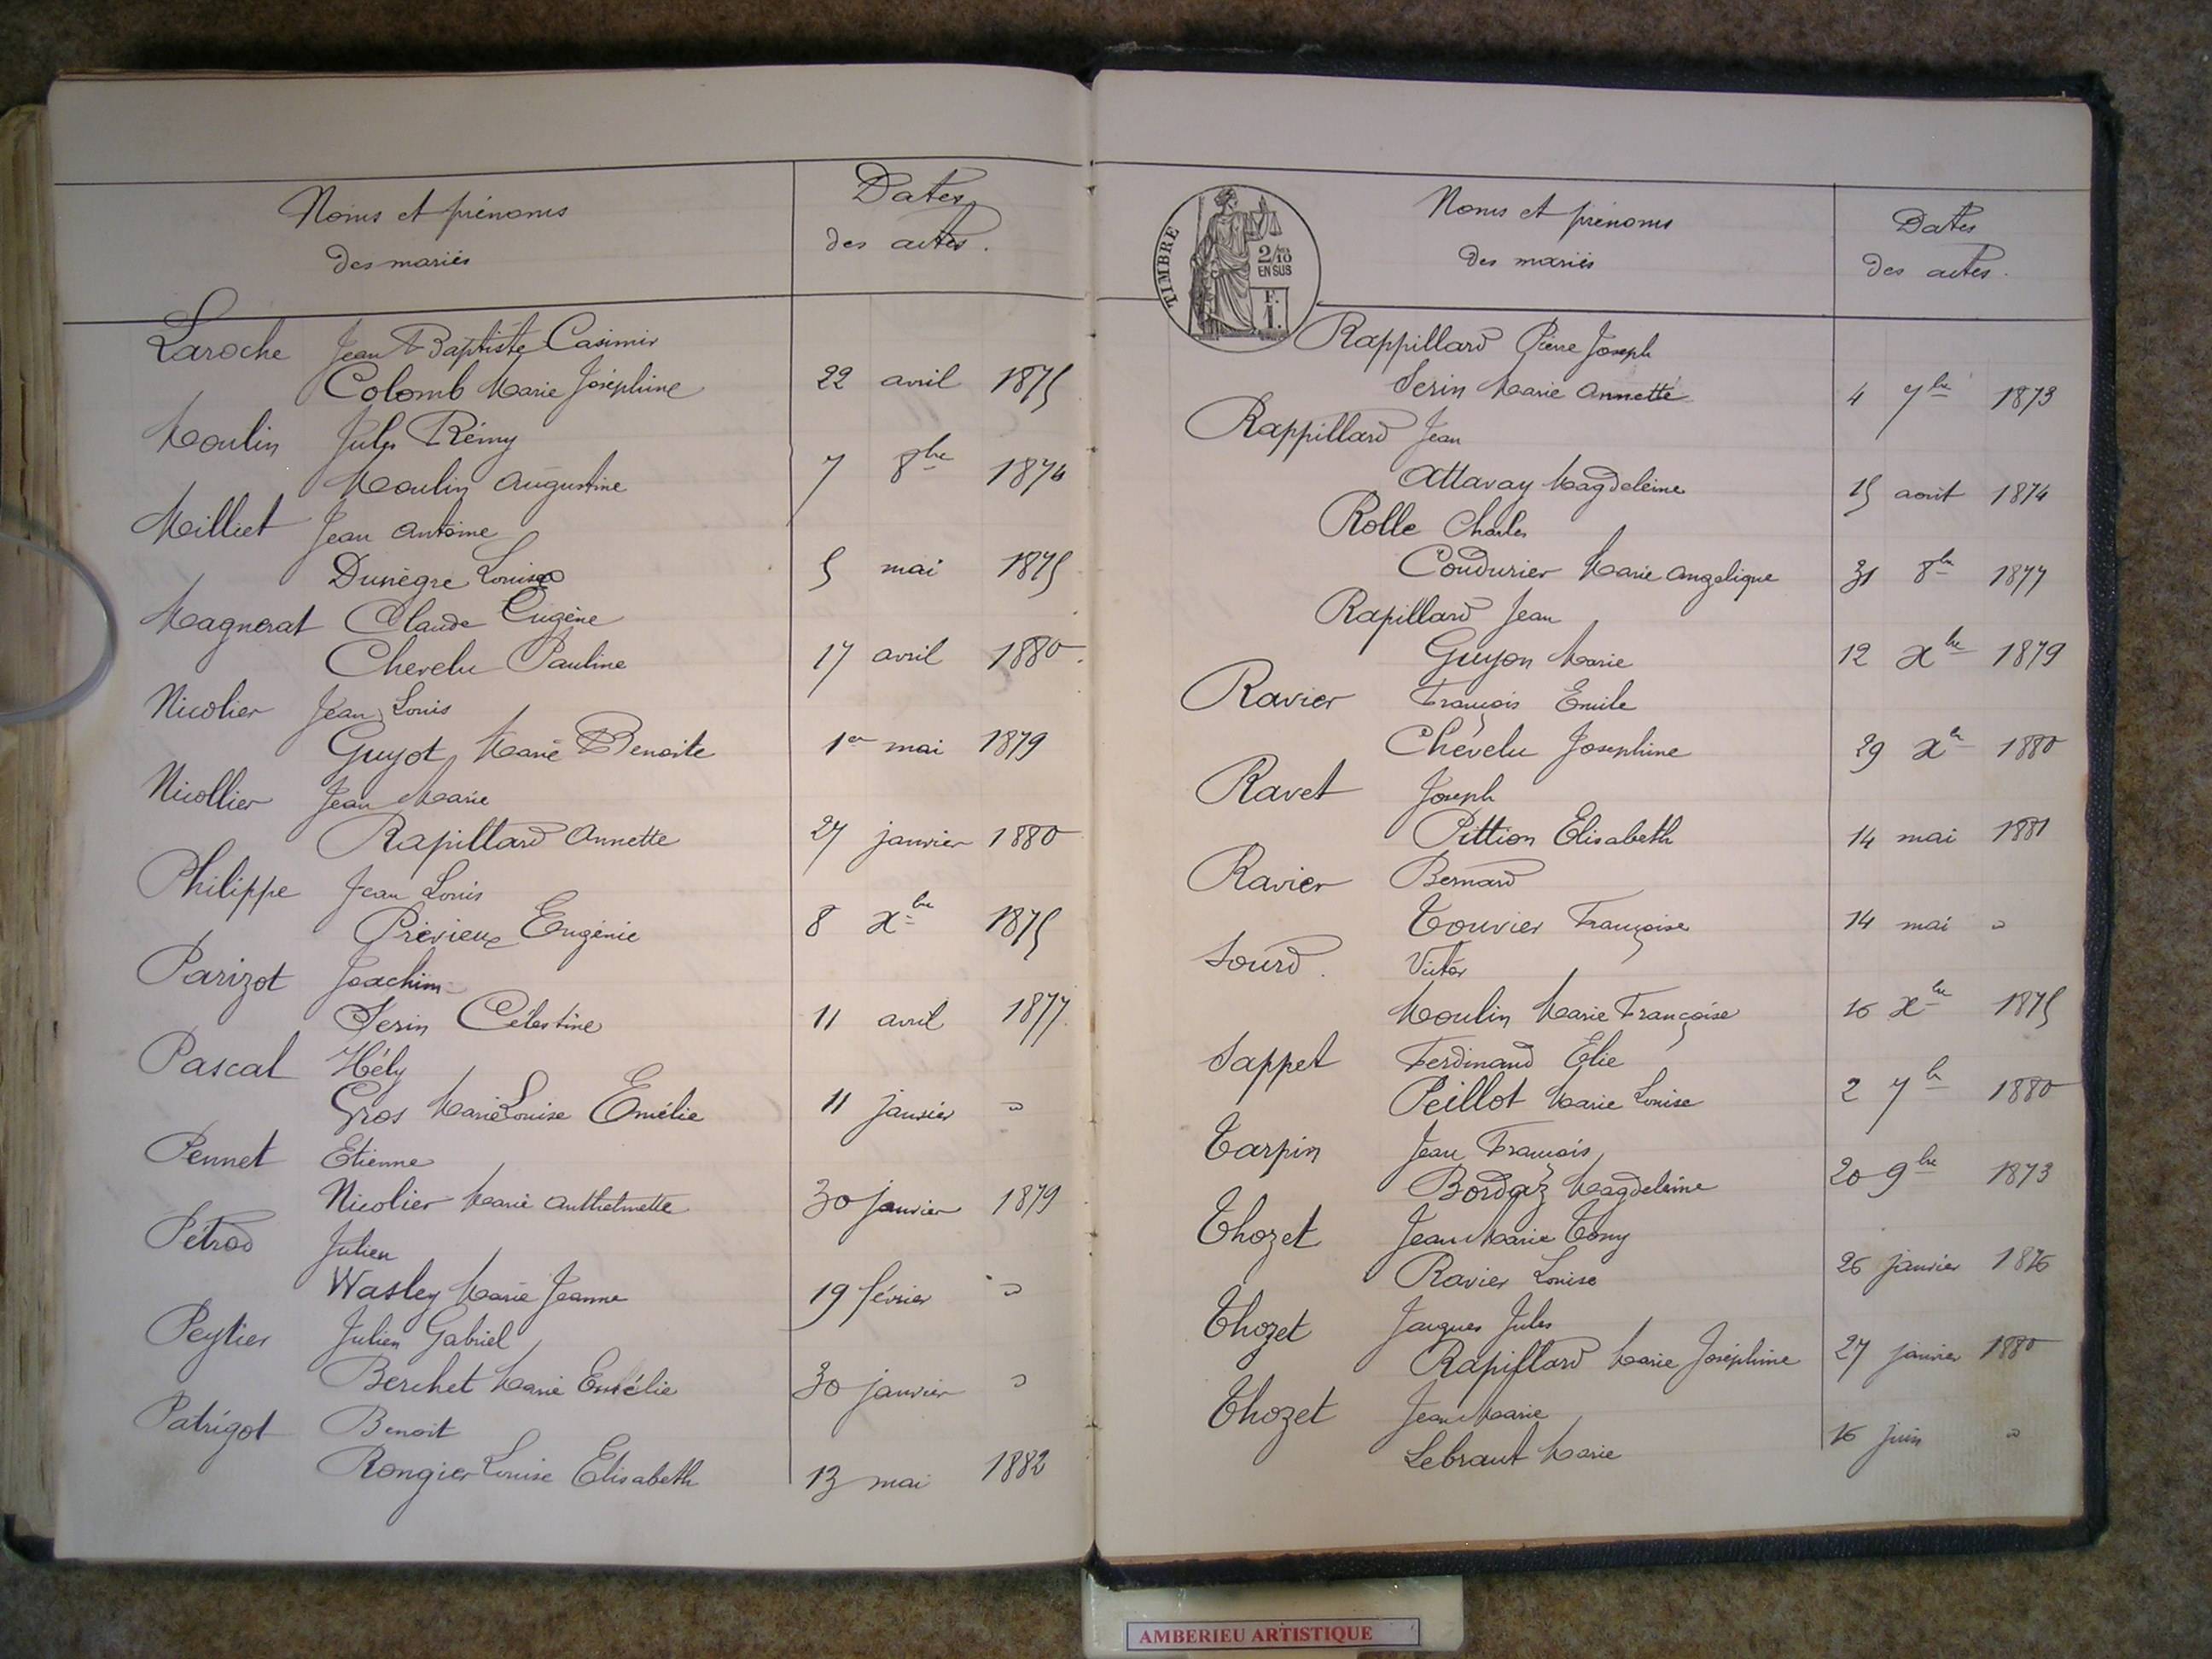 Noms et prénoms
des mariés
Dates
des actes.
Laroche Jean Baptiste Casimir
Colomb Marie Joséphine 22 avril 1875
Moulin Jules Rémy
Moulin Augustine 7 8bre 1874
Milliet Jean Antoine
Dunègre Louise 5 mai 1875
Magnerat Claude Eugène
Chevelu Pauline 17 avril 1880.
Nicolier Jean Louis
Guyot Marie Benoite 1er mai 1879
Nicollier Jean Marie
Rapillard Annette 27 janvier 1880
Philippe Jean Louis
Prévieux Eugénie 8 Xbre 1875
Parizot Joachim
Serin Célestine 11 avril 1877
Pascal Hély
Gros Marie Louise Emélie 11 janvier "
Pennet Etienne
Nicolier Marie Anthelmette 30 janvier 1879
Pétrod Julien
Wasley Marie Jeanne 19 février "
Peytier Julien Gabriel
Berchet Marie Emélie 30 janvier "
Patrigot Benoit
Rongier Louise Elisabeth 13 mai 1882
TIMBRE
2/10
EN SUS
F.
1.
Noms et prénoms
des mariés
Dates
des actes.
Rappillard Pierre Joseph
Serin Marie Annette 4 7bre 1873
Rappillard Jean
Attavay Magdeleine 15 août 1874
Rolle Charles
Coudurier Marie Angelique 31 8bre 1877
Rapillard Jean
Guyon Marie 12 Xbre 1879
Ravier François Emile
Chevelu Josephine 29 Xbre 1880
Ravet Joseph
Pittion Elisabeth 14 mai 1881
Ravier Bernard
Touvier Françoise 14 mai "
Sourd. Victor
Moulin Marie Françoise 16 Xbre 1875
Sappet Ferdinand Elie
Peillot Marie Louise 2 7bre 1880
Tarpin Jean François
Bordaz Magdeleine 20 9bre 1873
Thozet Jean Marie Tony
Ravier Louise 26 janvier 1876
Thozet Jacques Jules
Rapillard Marie Joséphine 27 janvier 1880
Thozet Jean Marie
Lebraut Marie 16 juin "
AMBERIEU ARTISTIQUE